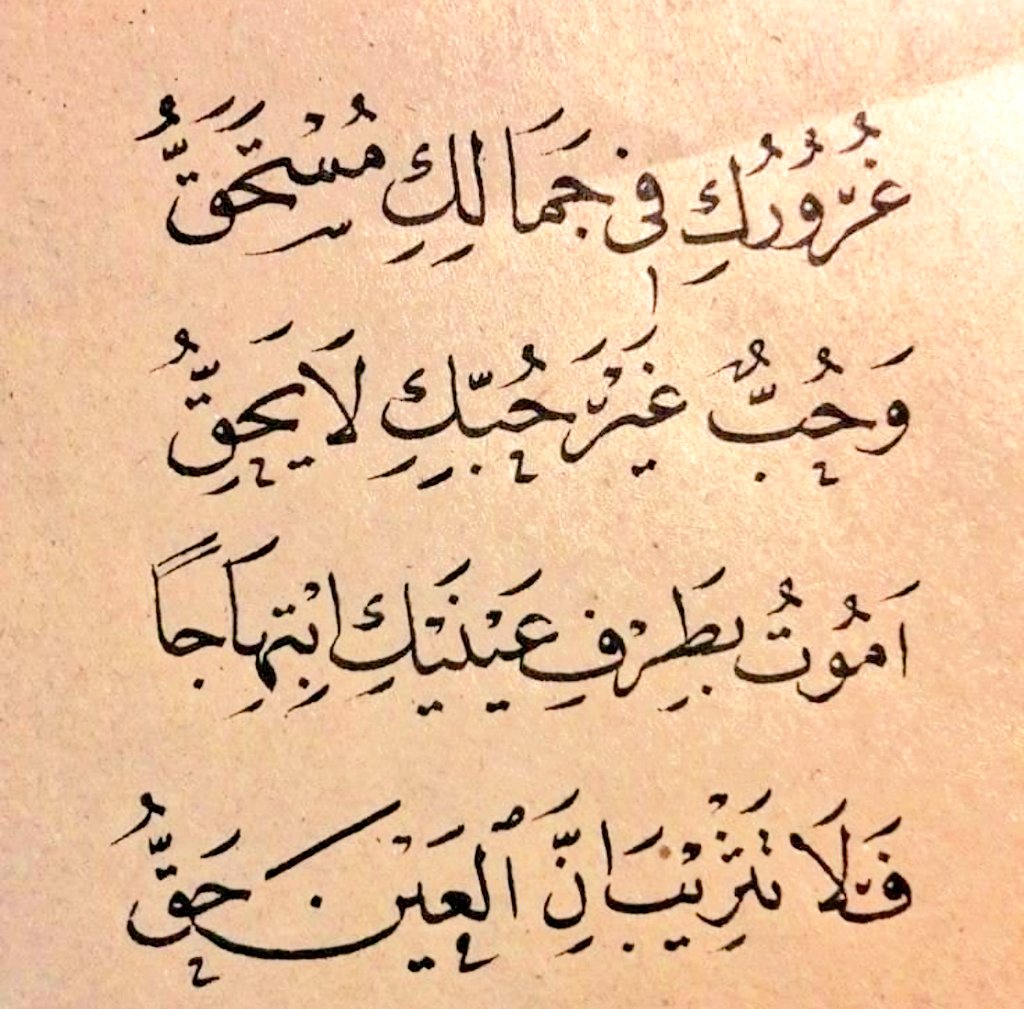 غُرُورُكِ فِي جَمَالِكِ مُسْتَحَقُّ
وَحُبٌّ غَيْرَ حُبِّكِ لَا يَحِقُّ
اَمُوتُ بِطَرْفِ عَيْنَيْكِ ابْتِهَاجاً
فَلَا تَثْرِيبَ اِنَّ ٱلْعَيْنَ حَقُّ